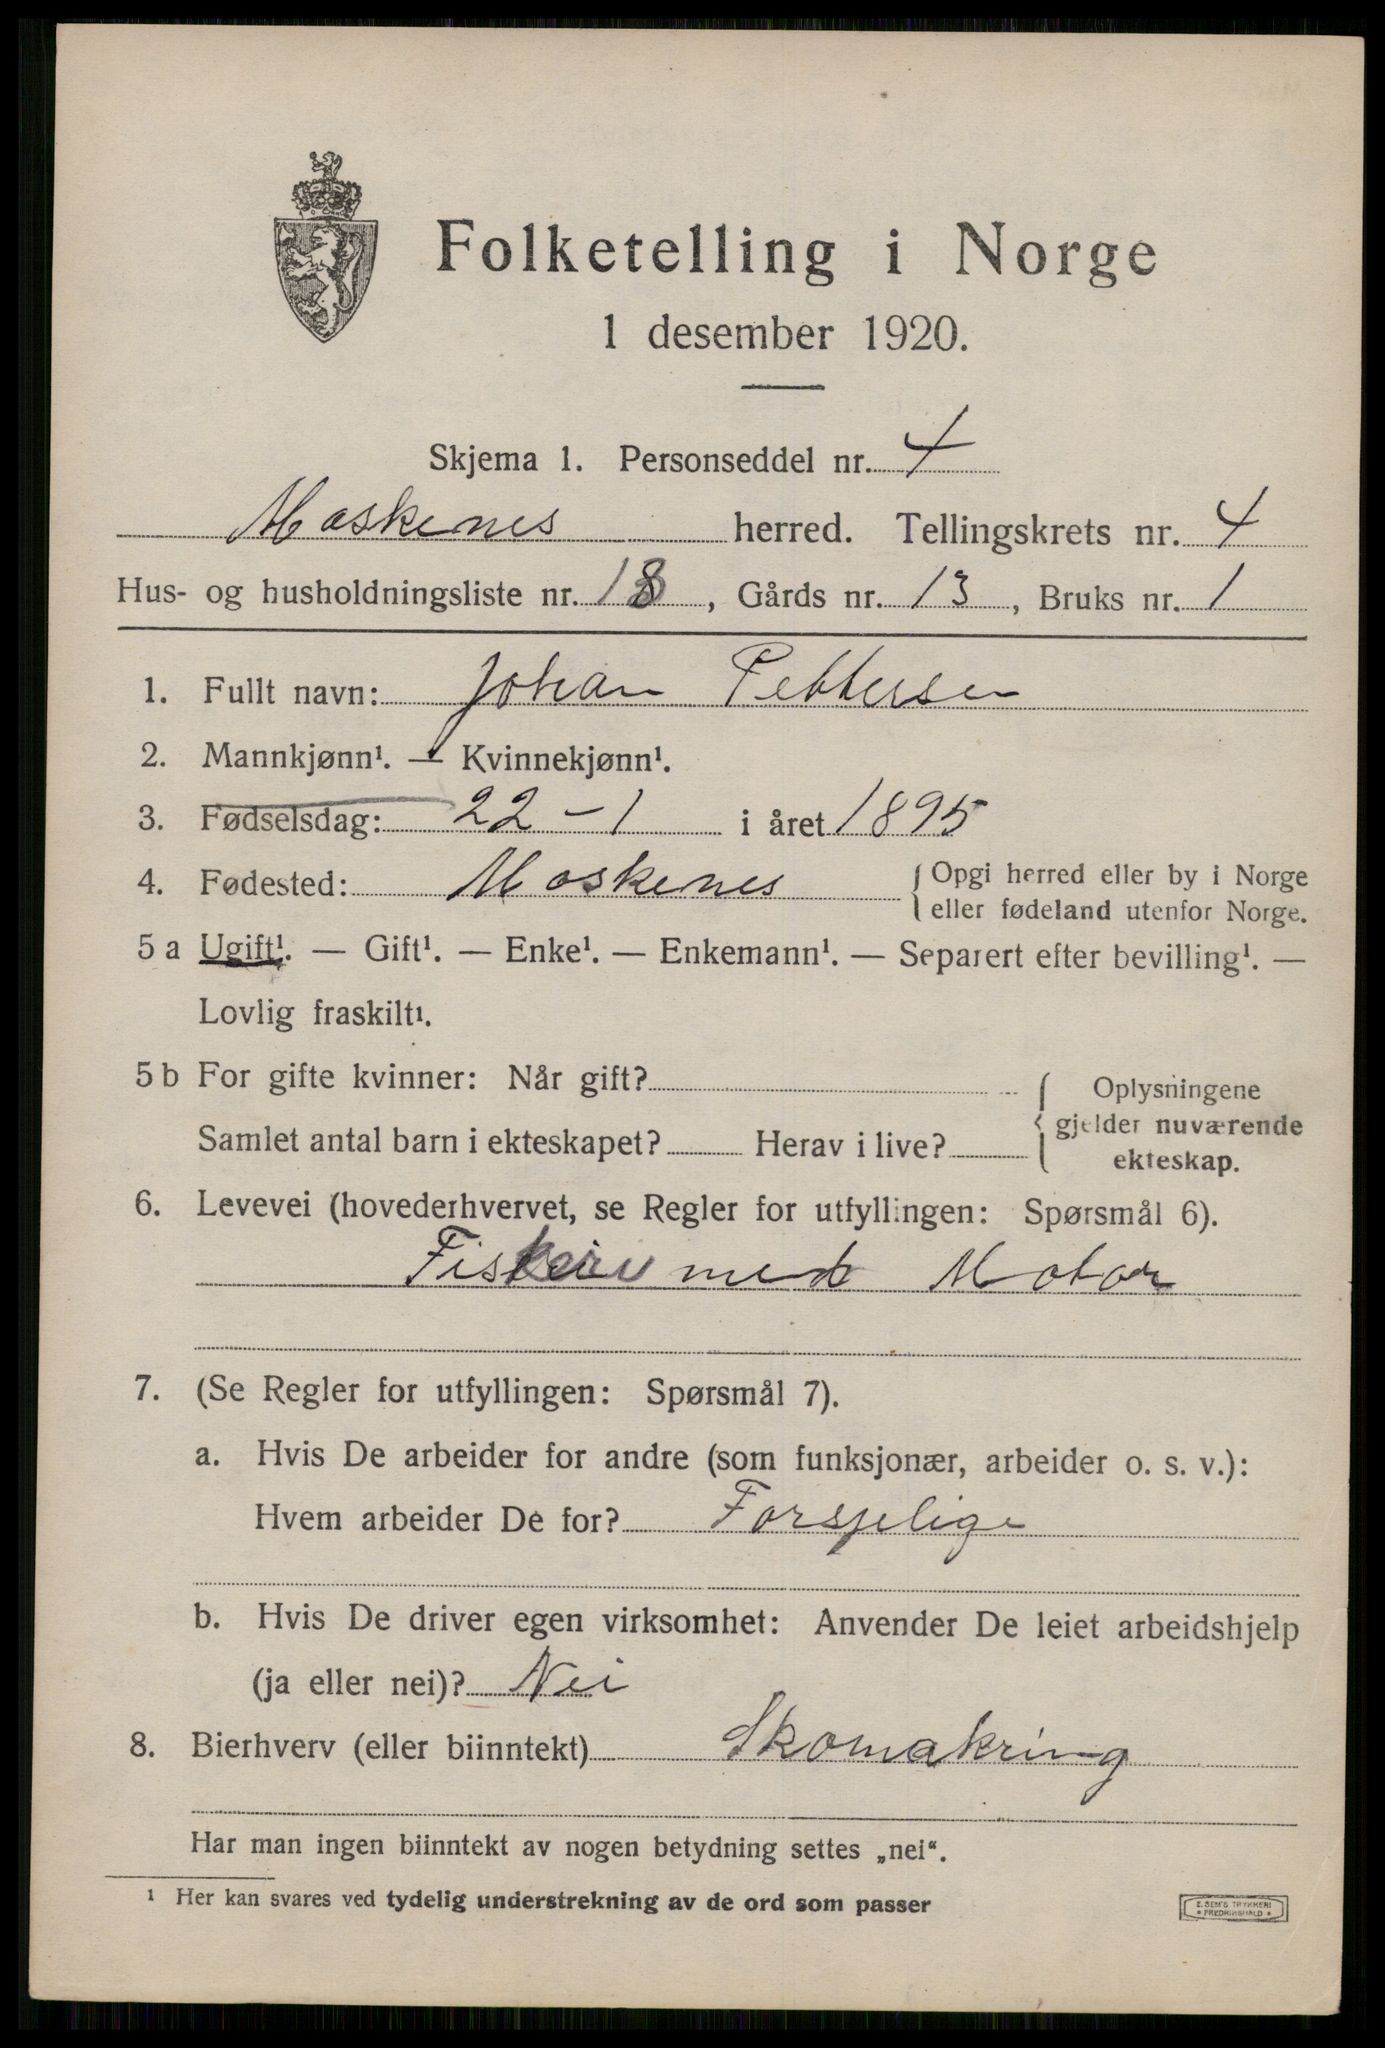 Folketelling i Norge
1 desember 1920.
Skjema 1. Personseddel nr. 4
Moskenes herred. Tellingskrets nr. 4
Hus- og husholdningsliste nr. 18, Gårds nr. 13, Bruks nr. 1
1. Fullt navn: Johan Pettersen
2. Mannkjønn¹. — Kvinnekjønn¹.
3. Fødselsdag: 22 - 1 i året 1895
4. Fødested: Moskenes { Opgi herred eller by i Norge
eller fødeland utenfor Norge.
5 a Ugift¹. — Gift¹. — Enke¹. — Enkemann¹. — Separert efter bevilling¹. —
Lovlig fraskilt¹.
5 b For gifte kvinner: Når gift? { Oplysningene
gjelder nuværende
Samlet antal barn i ekteskapet? Herav i live?
ekteskap.
6. Levevei (hovederhvervet, se Regler for utfyllingen: Spørsmål 6).
med Motor
7. (Se Regler for utfyllingen: Spørsmål 7).
a. Hvis De arbeider for andre (som funksjonær, arbeider o. s. v.):
Hvem arbeider De for? Forsjelige
b. Hvis De driver egen virksomhet: Anvender De leiet arbeidshjelp
(ja eller nei)? Nei
8. Bierhverv (eller biinntekt) Skomakring
Har man ingen biinntekt av nogen betydning settes „nei“.
¹ Her kan svares ved tydelig understrekning av de ord som passer
E. SEM'S TRYKKERI
* FREDRIKSHALD *